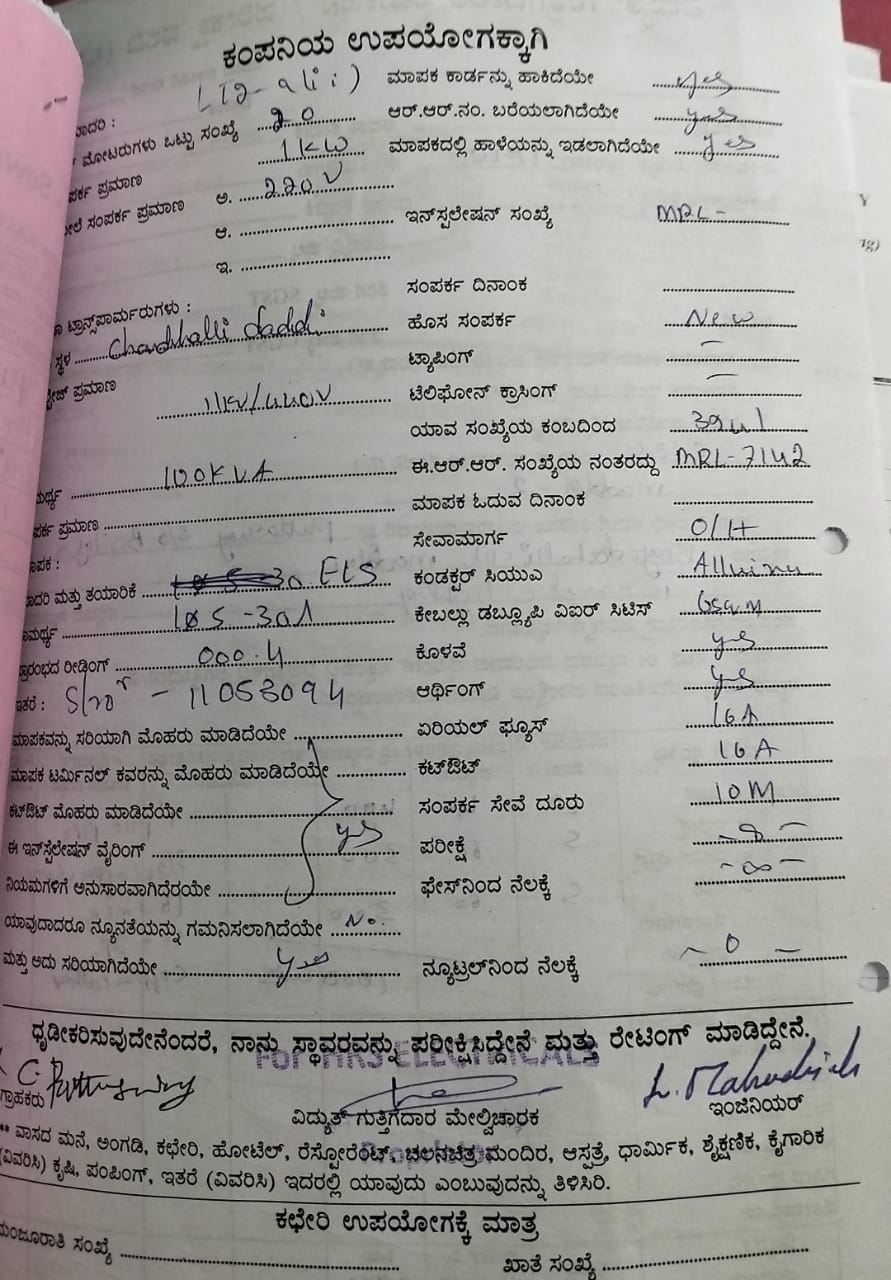 ಕಂಪನಿಯ ಉಪಯೋಗಕ್ಕಾಗಿ
ಮಾಪಕ ಕಾರ್ಡನ್ನು ಹಾಕಿದೆಯೇ yes
ಮೋಟರುಗಳು ಒಟ್ಟು ಸಂಖ್ಯೆ 20 ಆರ್.ಆರ್.ನಂ. ಬರೆಯಲಾಗಿದೆಯೇ yes
ಪ್ರಮಾಣ 1KW ಮಾಪಕದಲ್ಲಿ ಹಾಳೆಯನ್ನು ಇಡಲಾಗಿದೆಯೇ yes
ಸಂಪರ್ಕ ಪ್ರಮಾಣ ಅ. 220V
ಆ. ಇನ್‌ಸ್ಪಲೇಷನ್ ಸಂಖ್ಯೆ MRL-
ಇ.
ಸಂಪರ್ಕ ದಿನಾಂಕ
ಟ್ರಾನ್ಸ್‌ಪಾರ್ಮರುಗಳು :
ಸ್ಥಳ ಹೊಸ ಸಂಪರ್ಕ New
ಟ್ಯಾಪಿಂಗ್ –
ಪ್ರಮಾಣ 11KV/440V ಟೆಲಿಫೋನ್ ಕ್ರಾಸಿಂಗ್ –
ಯಾವ ಸಂಖ್ಯೆಯ ಕಂಬದಿಂದ
100KVA ಈ.ಆರ್.ಆರ್. ಸಂಖ್ಯೆಯ ನಂತರದ್ದು MRL-7142
ಪ್ರಮಾಣ ಮಾಪಕ ಓದುವ ದಿನಾಂಕ
ಸೇವಾಮಾರ್ಗ O/H
ಮತ್ತು ತಯಾರಿಕೆ ಕಂಡಕ್ಟರ್ ಸಿಯುಎ
ಕೇಬಲ್ಲು ಡಬ್ಲ್ಯೂಪಿ ವಿಐರ್ ಸಿಟಿಸ್
ರೀಡಿಂಗ್ 000.4 ಕೊಳವೆ yes
ಇತರೆ : 11053094 ಆರ್ಥಿಂಗ್ yes
ಮಾಪಕವನ್ನು ಸರಿಯಾಗಿ ಮೊಹರು ಮಾಡಿದೆಯೇ ಏರಿಯಲ್ ಫ್ಯೂಸ್ 16A
ಮಾಪಕ ಟರ್ಮಿನಲ್ ಕವರನ್ನು ಮೊಹರು ಮಾಡಿದೆಯೇ ಕಟ್‌ಔಟ್ 16A
ಕಟ್‌ಔಟ್ ಮೊಹರು ಮಾಡಿದೆಯೇ ಸಂಪರ್ಕ ಸೇವೆ ದೂರು 10M
ಈ ಇನ್‌ಸ್ಪೆಲೇಷನ್ ವೈರಿಂಗ್ yes ಪರೀಕ್ಷೆ
ನಿಯಮಗಳಿಗೆ ಅನುಸಾರವಾಗಿದೆರಯೇ ಫೇಸ್‌ನಿಂದ ನೆಲಕ್ಕೆ – ∞ –
ಯಾವುದಾದರೂ ನ್ಯೂನತೆಯನ್ನು ಗಮನಿಸಲಾಗಿದೆಯೇ No.
ಮತ್ತು ಅದು ಸರಿಯಾಗಿದೆಯೇ yes ನ್ಯೂಟ್ರಲ್‌ನಿಂದ ನೆಲಕ್ಕೆ – 0 –
ಧೃಡೀಕರಿಸುವುದೇನೆಂದರೆ, ನಾನು ಸ್ಥಾವರವನ್ನು ಪರೀಕ್ಷಿಸಿದ್ದೇನೆ ಮತ್ತು ರೇಟಿಂಗ್ ಮಾಡಿದ್ದೇನೆ.
ಗ್ರಾಹಕರು ವಿದ್ಯುತ್ ಗುತ್ತಿಗೆದಾರ ಮೇಲ್ವಿಚಾರಕ ಇಂಜಿನಿಯರ್
** ವಾಸದ ಮನೆ, ಅಂಗಡಿ, ಕಛೇರಿ, ಹೋಟೆಲ್, ರೆಸ್ಟೋರೆಂಟ್, ಚಲನಚಿತ್ರ ಮಂದಿರ, ಆಸ್ಪತ್ರೆ, ಧಾರ್ಮಿಕ, ಶೈಕ್ಷಣಿಕ, ಕೈಗಾರಿಕ
(ವಿವರಿಸಿ) ಕೃಷಿ, ಪಂಪಿಂಗ್, ಇತರೆ (ವಿವರಿಸಿ) ಇದರಲ್ಲಿ ಯಾವುದು ಎಂಬುವುದನ್ನು ತಿಳಿಸಿರಿ.
ಕಛೇರಿ ಉಪಯೋಗಕ್ಕೆ ಮಾತ್ರ
ಸಂಖ್ಯೆ ಖಾತೆ ಸಂಖ್ಯೆ